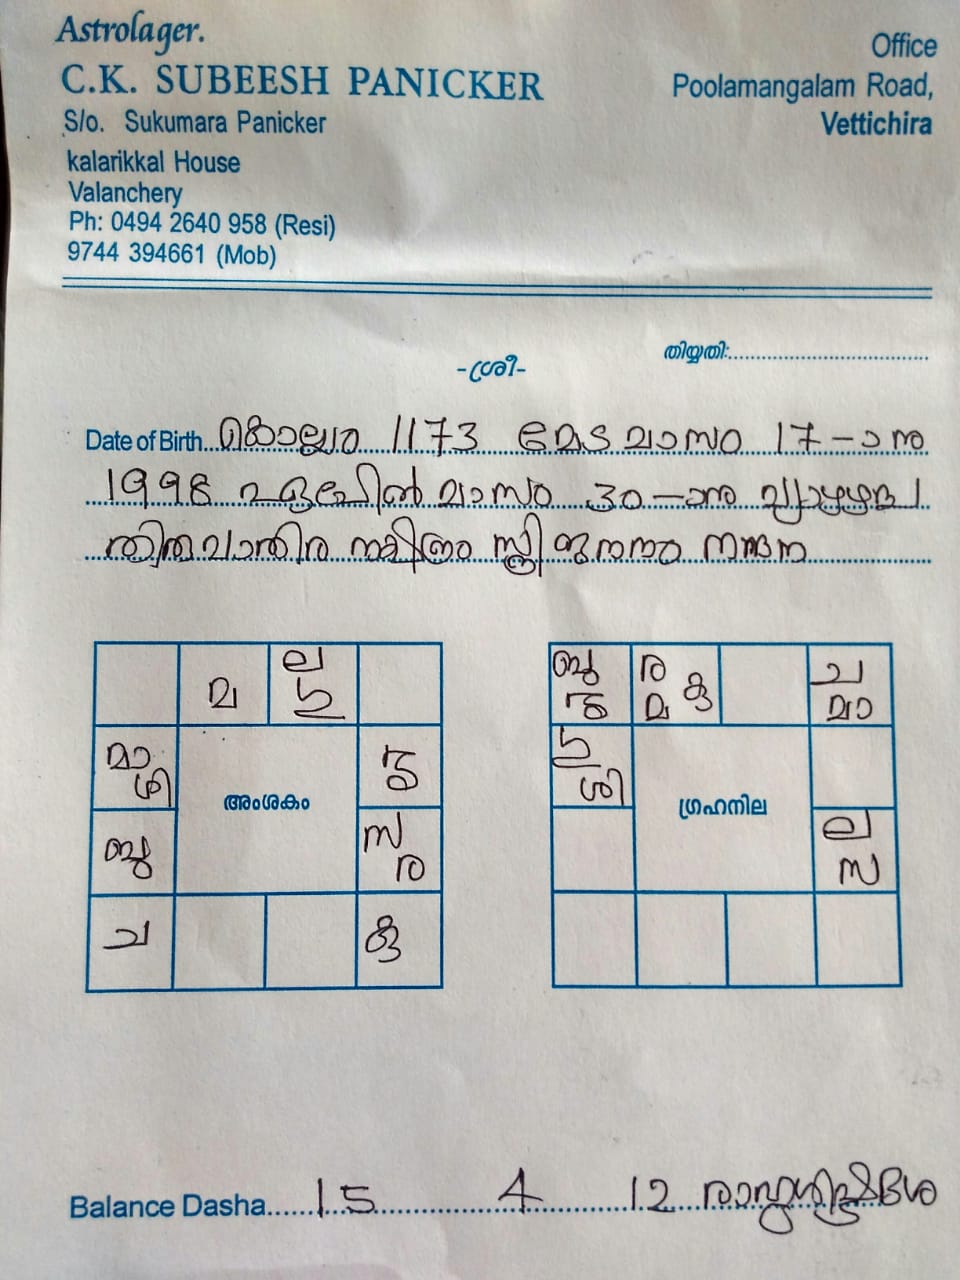 Astrolager.
C.K. SUBEESH PANICKER
S/o. Sukumara Panicker
kalarikkal House
Valanchery
Ph: 0494 2640 958 (Resi)
9744 394661 (Mob)
Office
Poolamangalam Road,
Vettichira
-ശ്രീ-
തിയ്യതി:
Date of Birth കൊല്ലം 1173 മേട മാസം 17-ാനു
1998 ഏപ്രിൽ മാസം 30-ാനു വ്യാഴാഴ്ച
തിരുവാതിര നക്ഷത്രം സ്ത്രീ ജനനം
മ
ല
ഗു
മാ
ശി
ശു
അംശകം
ബു
സ
ര
ച
കു
ബു
ശു
ര
മ കു
ച
മാ
ഗു
ശി
ഗ്രഹനില
ല
സ
Balance Dasha 15 4 12